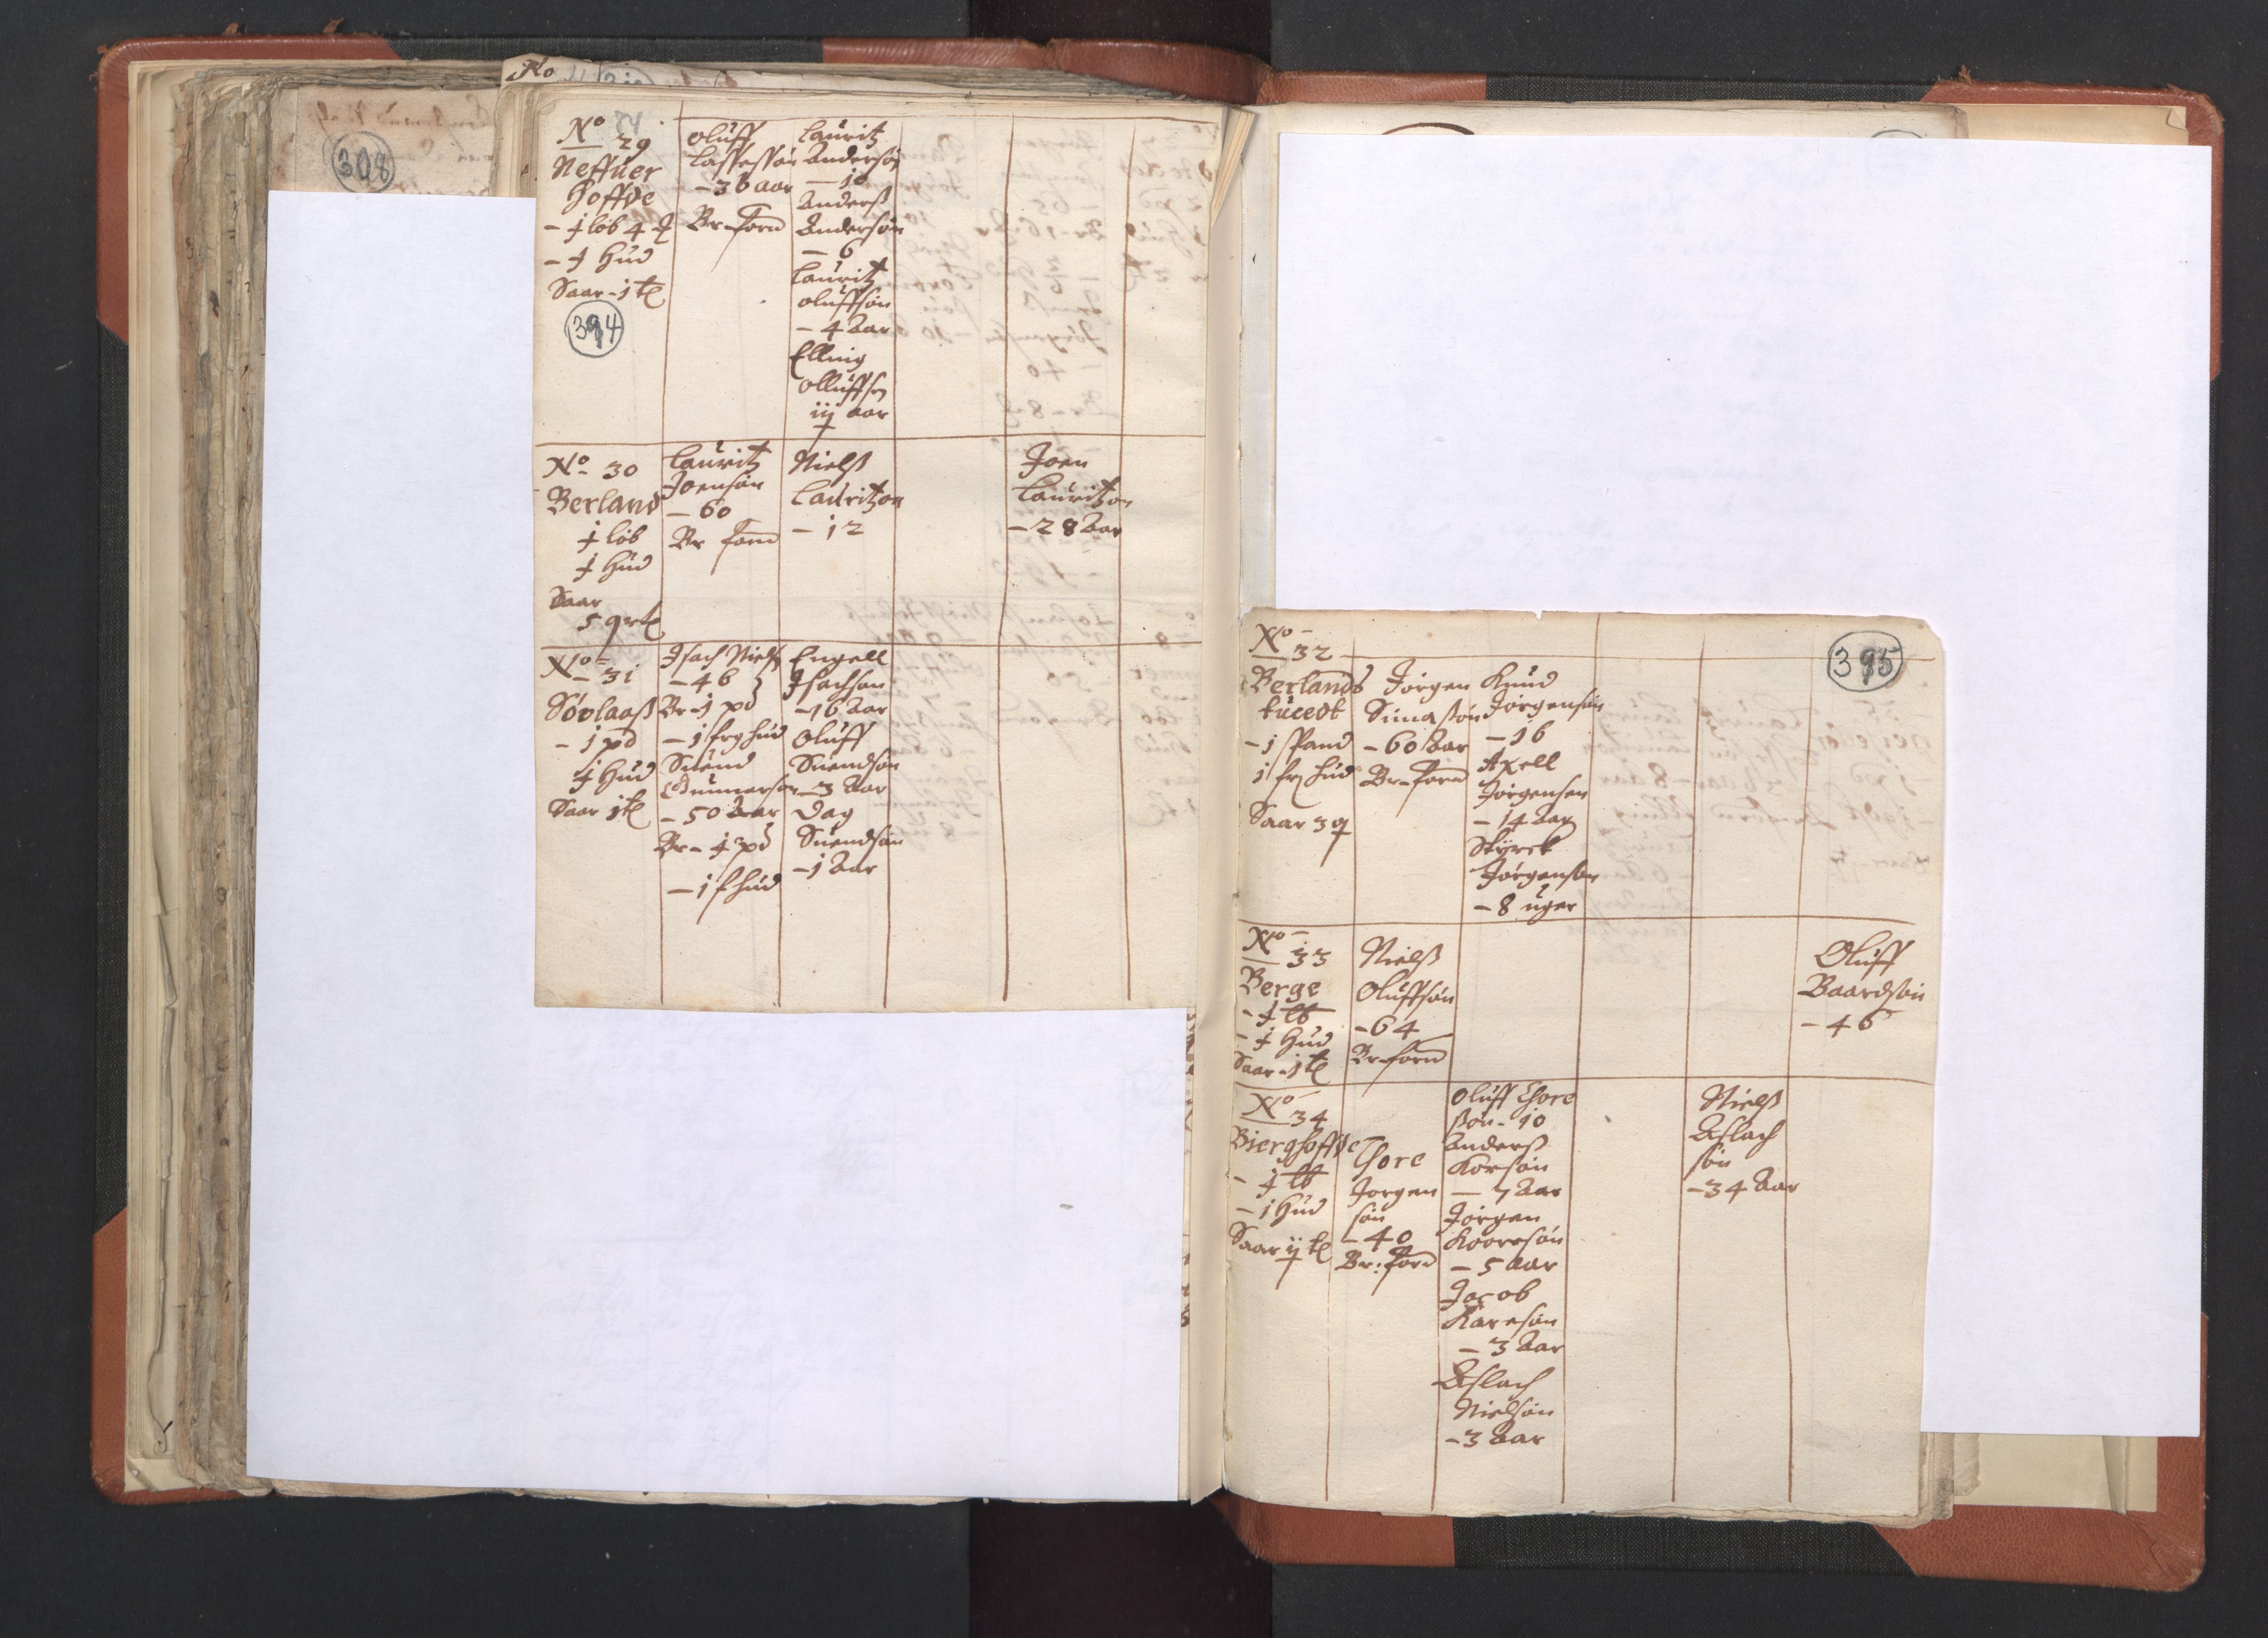 No
308
84
No 29
Neffuer
Hoffde
- j løb 4
- j Hud
Saar - 1 te
394
Oluff
Lassessøn
- 36 aar
Br - forn
Lauritz
Andersøn
- 10
Anderss
Andersøn
- 6
Lauritz
Oluffsøn
- 4 Aar
Elling
Olluffsø
iij aar
No 30
Berland
j løb
j Hud
Saar
5 qrte
Lauritz
Joensøn
- 60
Br forn
Nielss
Lauritzøn
- 12
Joen
Lauritzøn
- 28 Aar
No 31
Søvlaass
- 1 pd
j Hud
Saar 1 te
Isach Niels
- 46
Br - j pd
- 1 frg hud
Suend
Gunnersøn
- 50 Aar
Br - j pd
- 1 f hud
Engell
Isachsøn
- 16 Aar
Oluff
Suendsøn
- 3 Aar
Dag
Suendsøn
- 1 Aar
395
No 32
Berlands
tuedt
- 1 spand
1 frs hud
Saar 3 q
Jørgen
Simassøn
- 60 Aar
Br - forn
Knud
Jørgensøn
- 16
Axell
Jørgensøn
- 14 Aar
Styrck
Jørgensøn
- 8 uger
No 33
Berge
- j lb
- j Hud
Saar - 1 te
Nielss
Oluffsøn
- 64
Br forn
Oluff
Baardsøn
- 46
No 34
Bierghoffde
- j lb
- 1 Hud
Saar ij te
Thore
Jorgen
søn
- 40
Br: forn
Oluff Thore
søn - 10
Anderss
Korsøn
- 7 Aar
Jørgen
Kooresøn
- 5 Aar
Jacob
Karesøn
- 3 Aar
Aslach
Nielsøn
- 3 Aar
Nielss
Aslach
søn
- 34 Aar